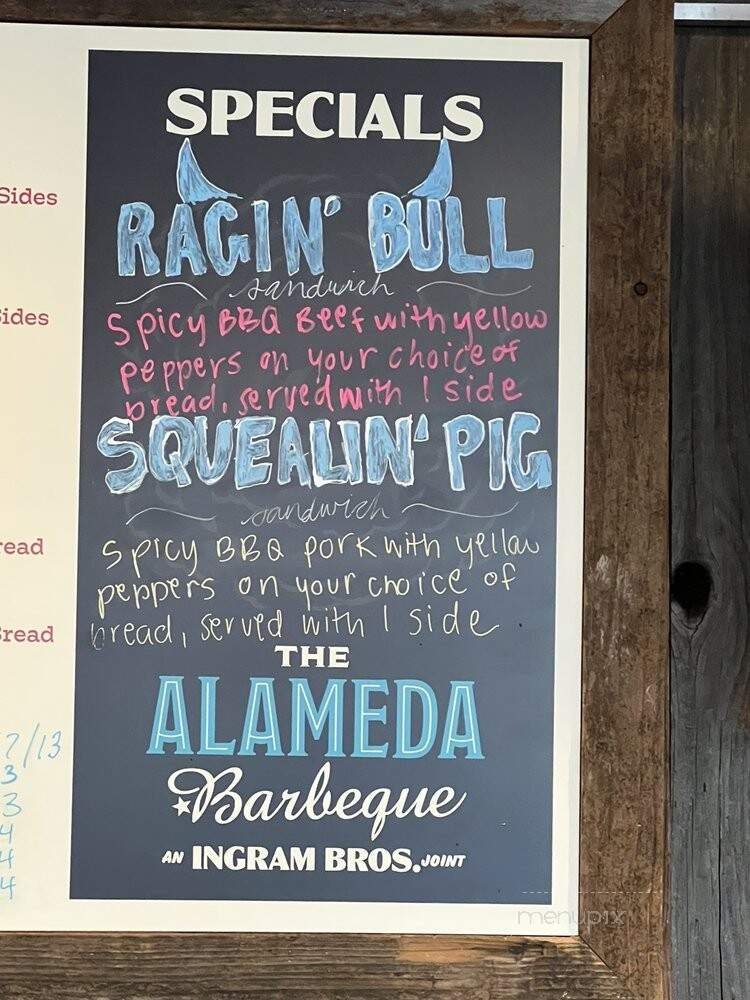 SPECIALS
RAGIN' BULL
sandwich
Spicy BBQ Beef with yellow
peppers on your choice of
bread, served with 1 side
SQUEALIN' PIG
sandwich
Spicy BBQ pork with yellow
peppers on your choice of
bread, served with 1 side
THE
ALAMEDA
Barbeque
AN INGRAM BROS. JOINT
Sides
ides
read
Bread
/13
3
3
4
4
4
menupix